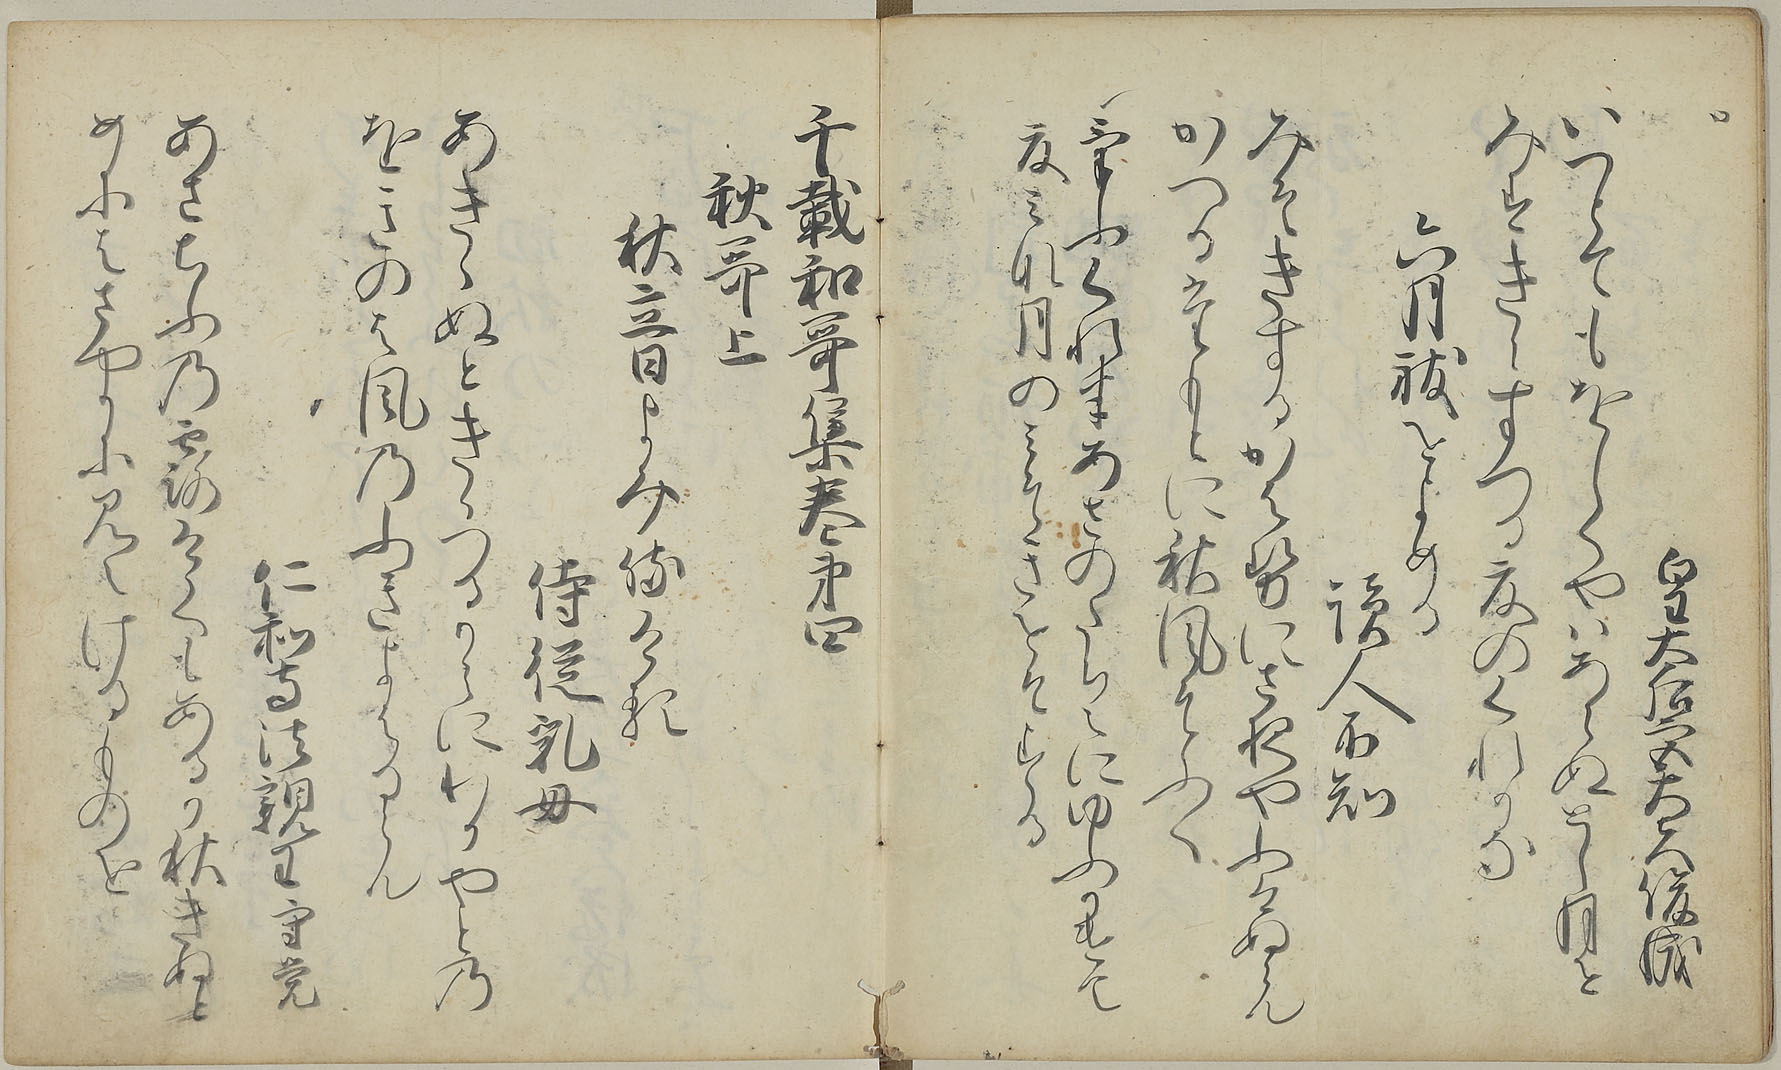 皇太后宮大夫俊成
いつとてもおしくやはあらぬとし月を
みそきにすつる夏のくれかな
六月祓をよめる
読人不知
みそきするかはせにさ夜やふけぬらん
かへるたもとに秋風そふく
季ふくれはあさのたちえにゆふかけて
夏みな月のみそきをそする
千載和哥集巻第四
秋哥上
秋立日よみ侍ける
侍従乳母
あききぬときゝつるからにわかやとの
おきのは風のふきかはるらん
仁和寺法親王守覚
あさちふの露けくもあるか秋きぬと
めにはさやかに見えけるものを